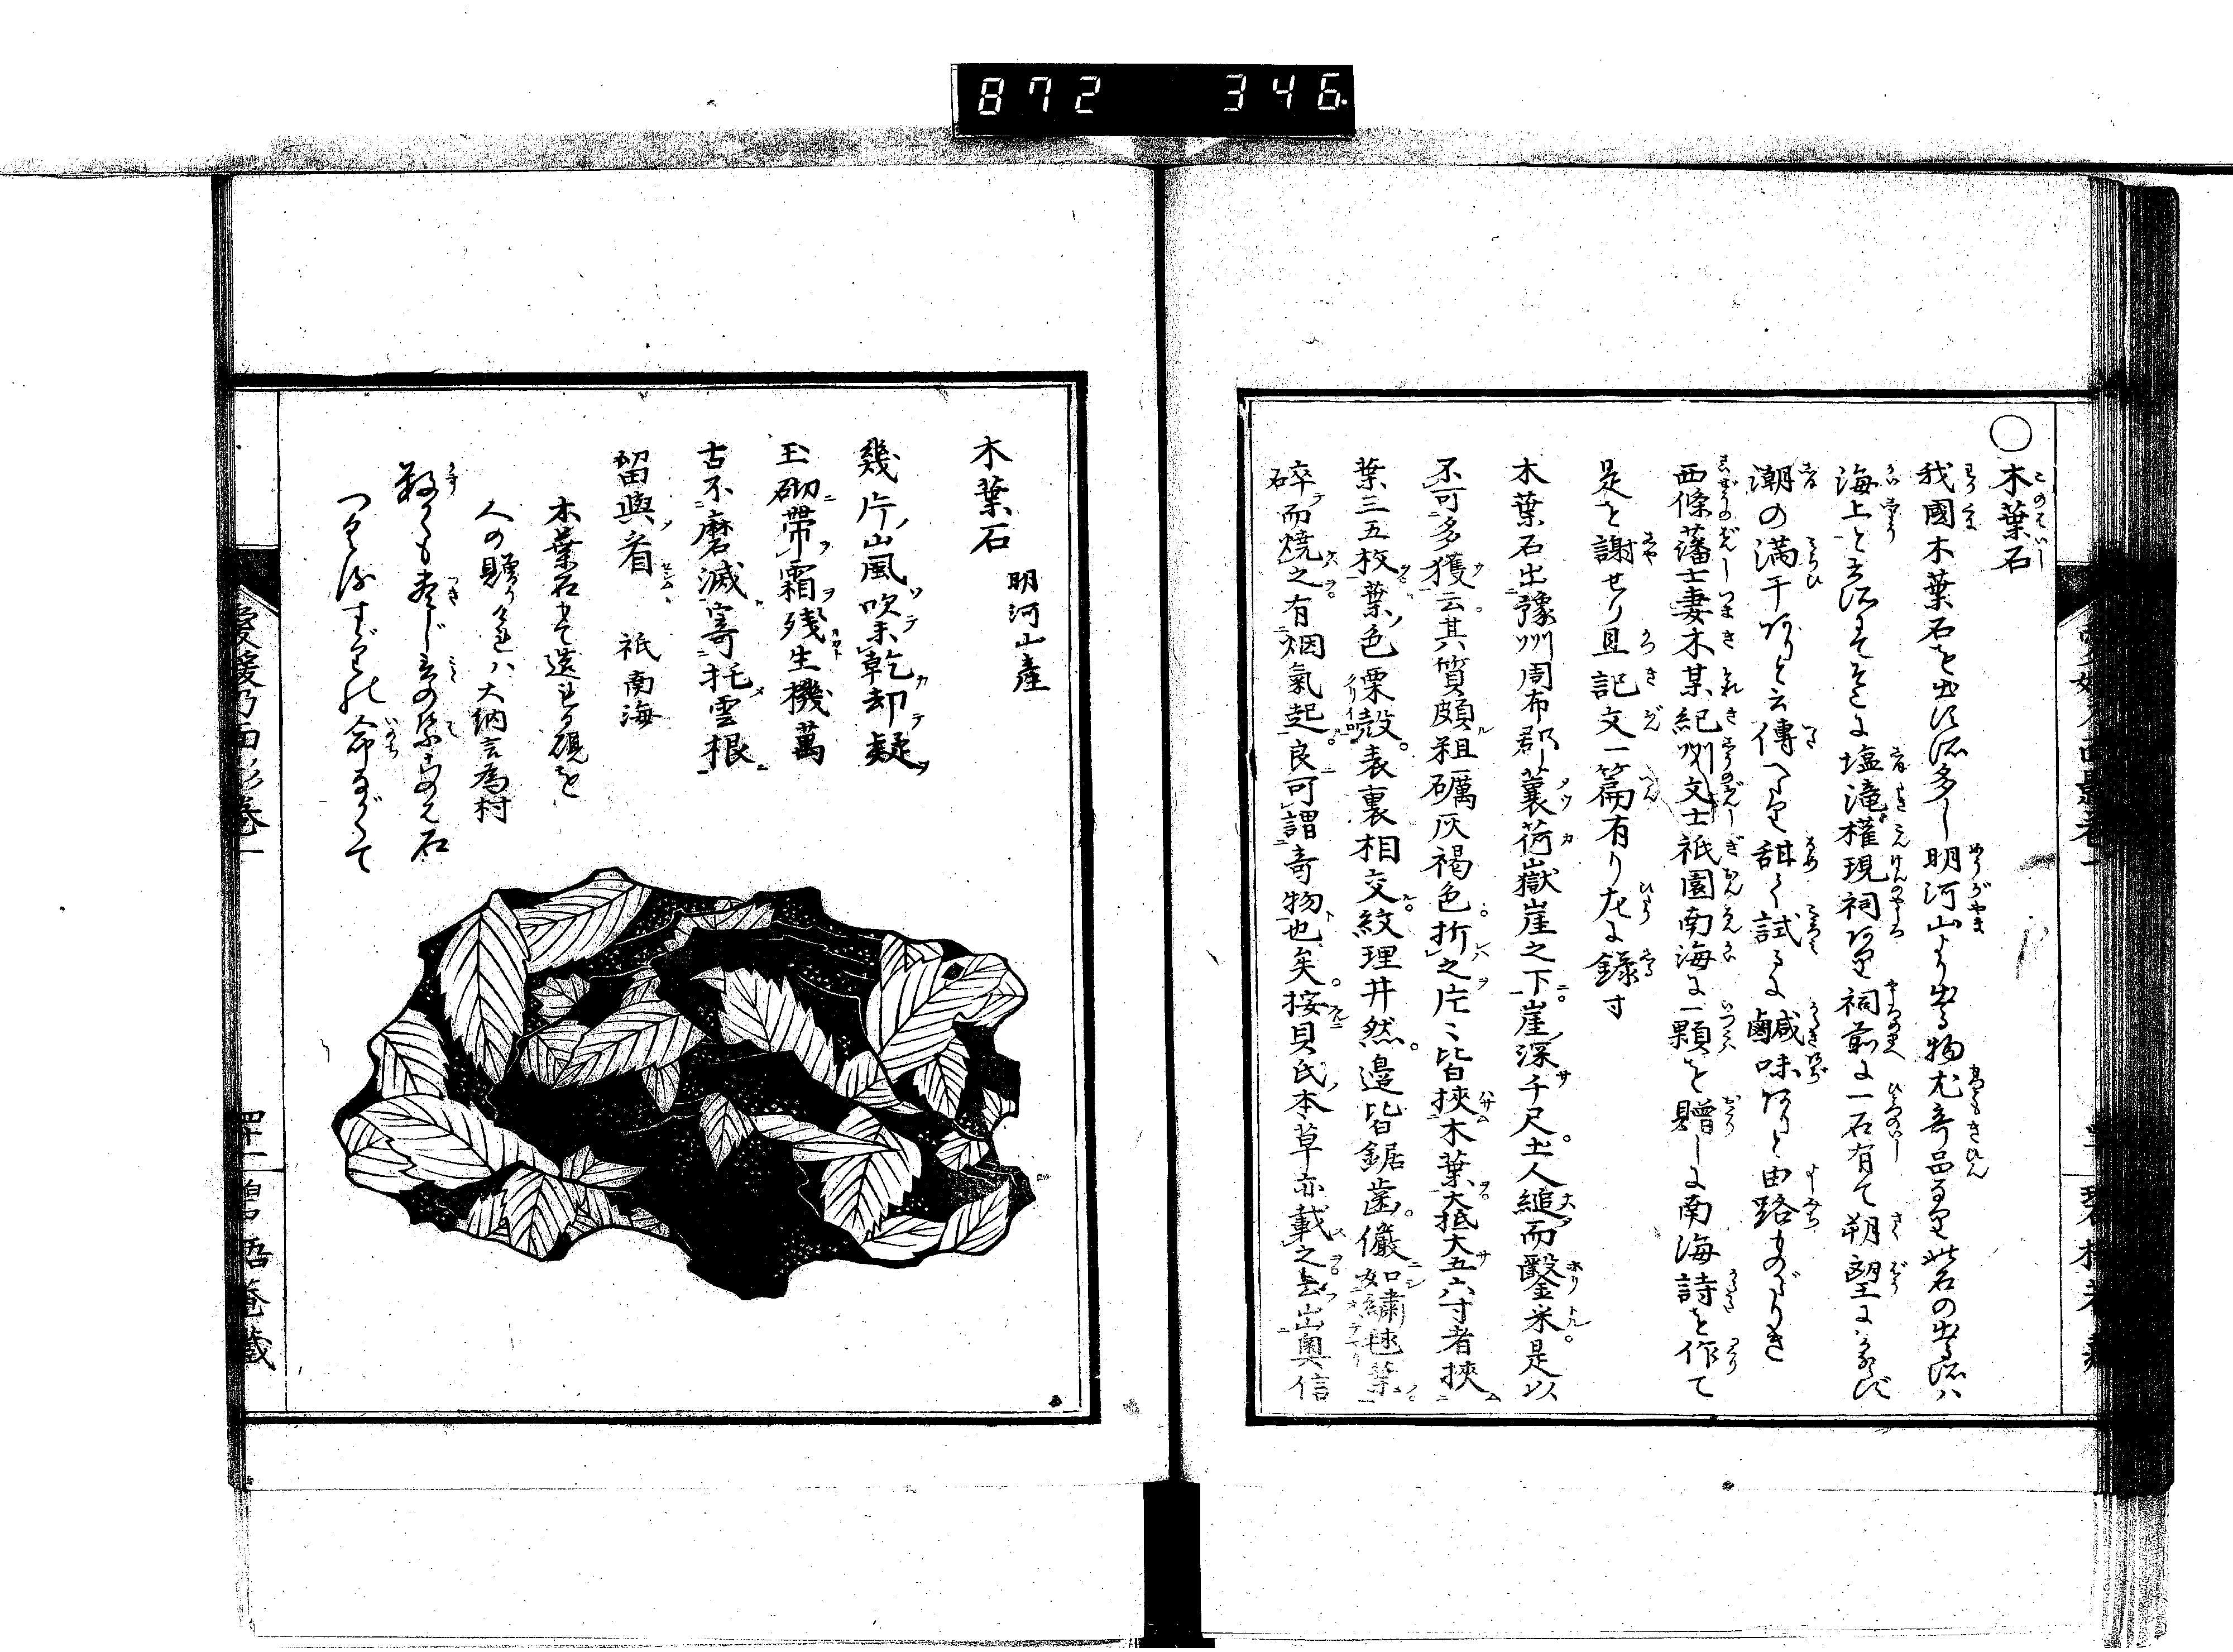 872 346
○木葉石
我國木葉石を出す所多し明河山より出る物尤奇品なり此石の出る所ハ
海上と云所にてそこに塩滝權現祠あり祠前に一石有て朔望にハかならず
潮の満干ありと云傳へたり甜て試るに鹹味ありと由路
西條藩士妻木某紀州文士祇園南海に一顆を贈しに南海詩を作て
是を謝せり且記文一篇有り左に録す
木葉石出豫州周布郡蓑荷嶽崖之下崖深千尺土人縋而鑿米是以
不可多獲云其質頗粗礪灰褐色折之片〻皆挾木葉大抵大五六寸者挾
葉三五枚葉色栗殻表裏相交紋理井然邊皆鋸歯儼如繡毬葉
碎而燒之有烟氣起良可謂奇物也矣按貝氏本草亦載之云出奧信
木葉石 明河山產
幾片山風吹乾却疑
玉砌帶霜殘生機萬
古不磨滅寄托雲根
留與看 祇南海
木葉石にて造れる硯を
人の贈りけれハ 大納言為村
数々も尽じ言の葉このは石
つきぬすゞりの命ながくて
愛媛乃面影卷一
四十一
碧梧菴藏